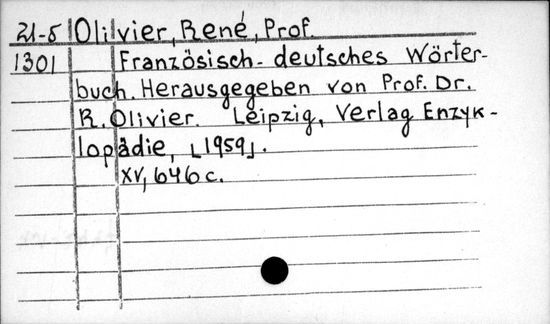 21-5 Olivier, René, Prof.
1301 Französisch-deutsches Wörter-
buch. Herausgegeben von Prof. Dr.
R. Olivier. Leipzig, Verlag Enzyk-
lopädie, [1959].
XV, 646 c.